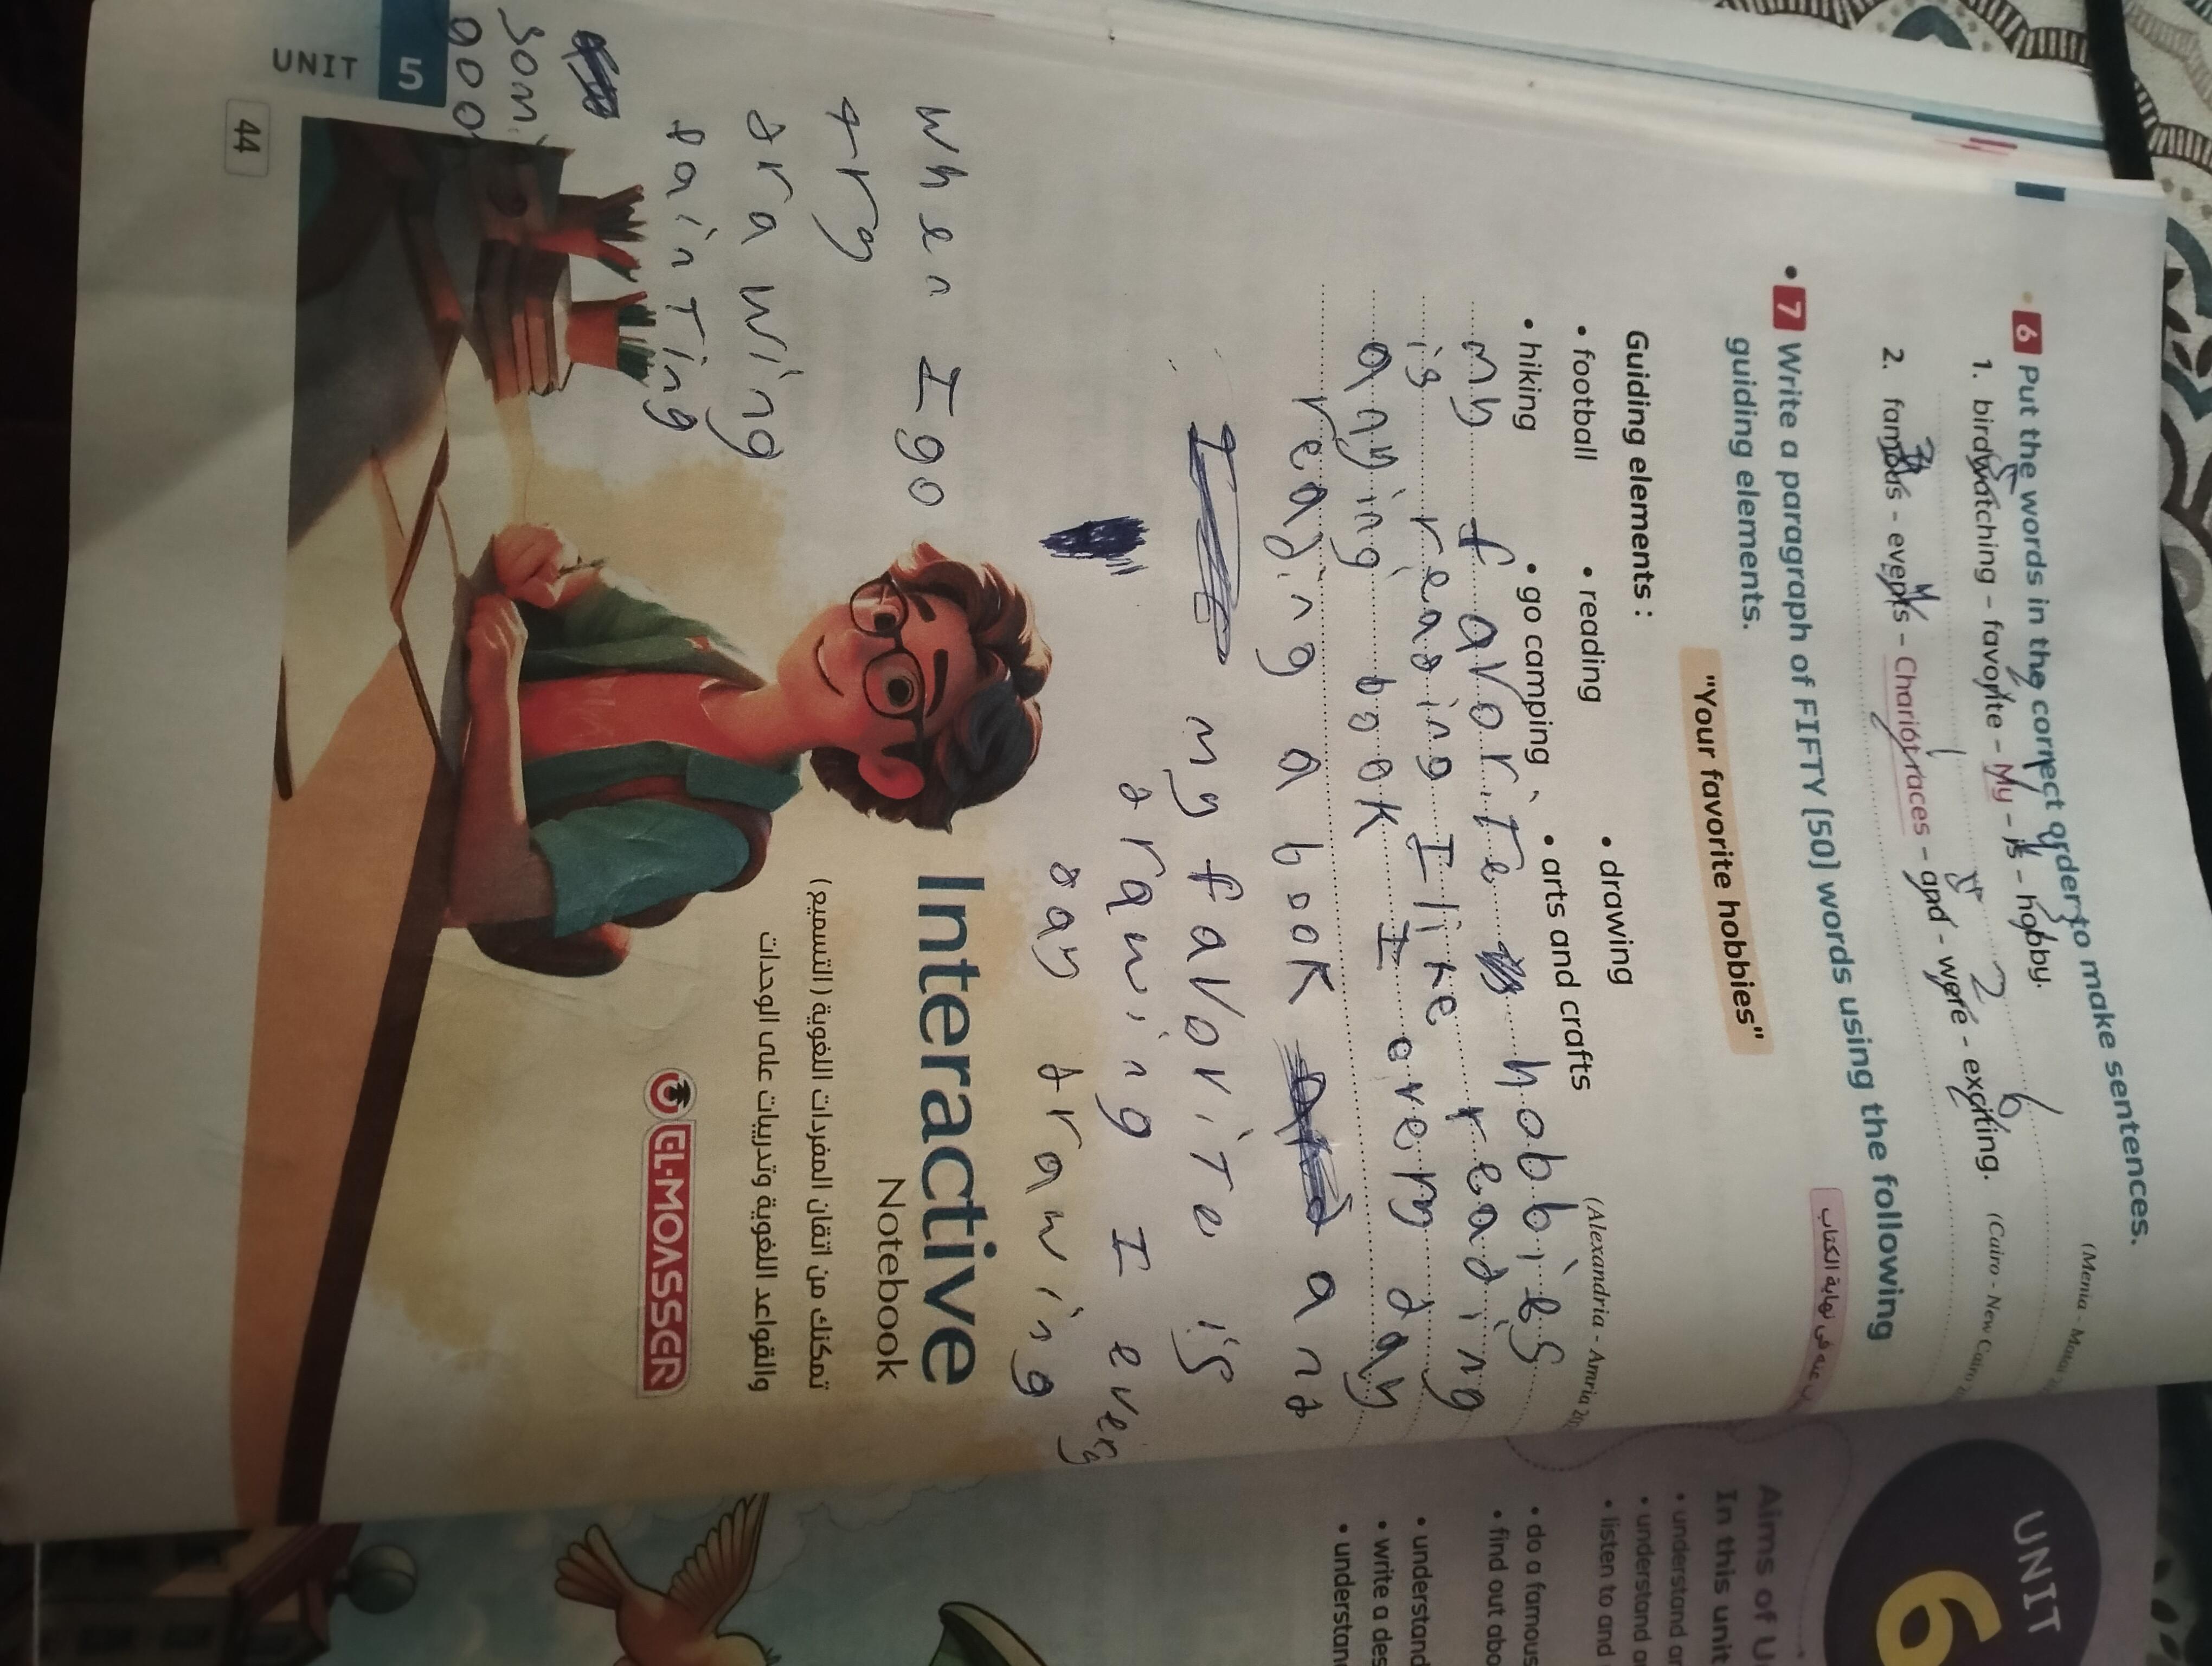 6 Put the words in the correct order to make sentences.
1. birdwatching - favorite - My - is - hobby.
2. famous - events - Chariot races - and - were - exciting. (Cairo - New Cairo
7 Write a paragraph of FIFTY (50) words using the following
guiding elements.
"Your favorite hobbies"
Guiding elements :
(Alexandria - Amria
• football • reading • drawing
• hiking • go camping • arts and crafts
my favorite hobbies
is reading I like reading
book I every day
reading a book and
my favorite is
drawing I every
day drawing
When I go
try
drawing
painting
Interactive
Notebook
تمكنك من اتقان المفردات اللغوية (التسميع)
والقواعد اللغوية وتدريبات على الوحدات
EL-MOASSER
UNIT 5
44
UNIT
6
Aims of
In this unit
• understand
• understand
• listen to and
• do a famous
• find out
• understand
• write a